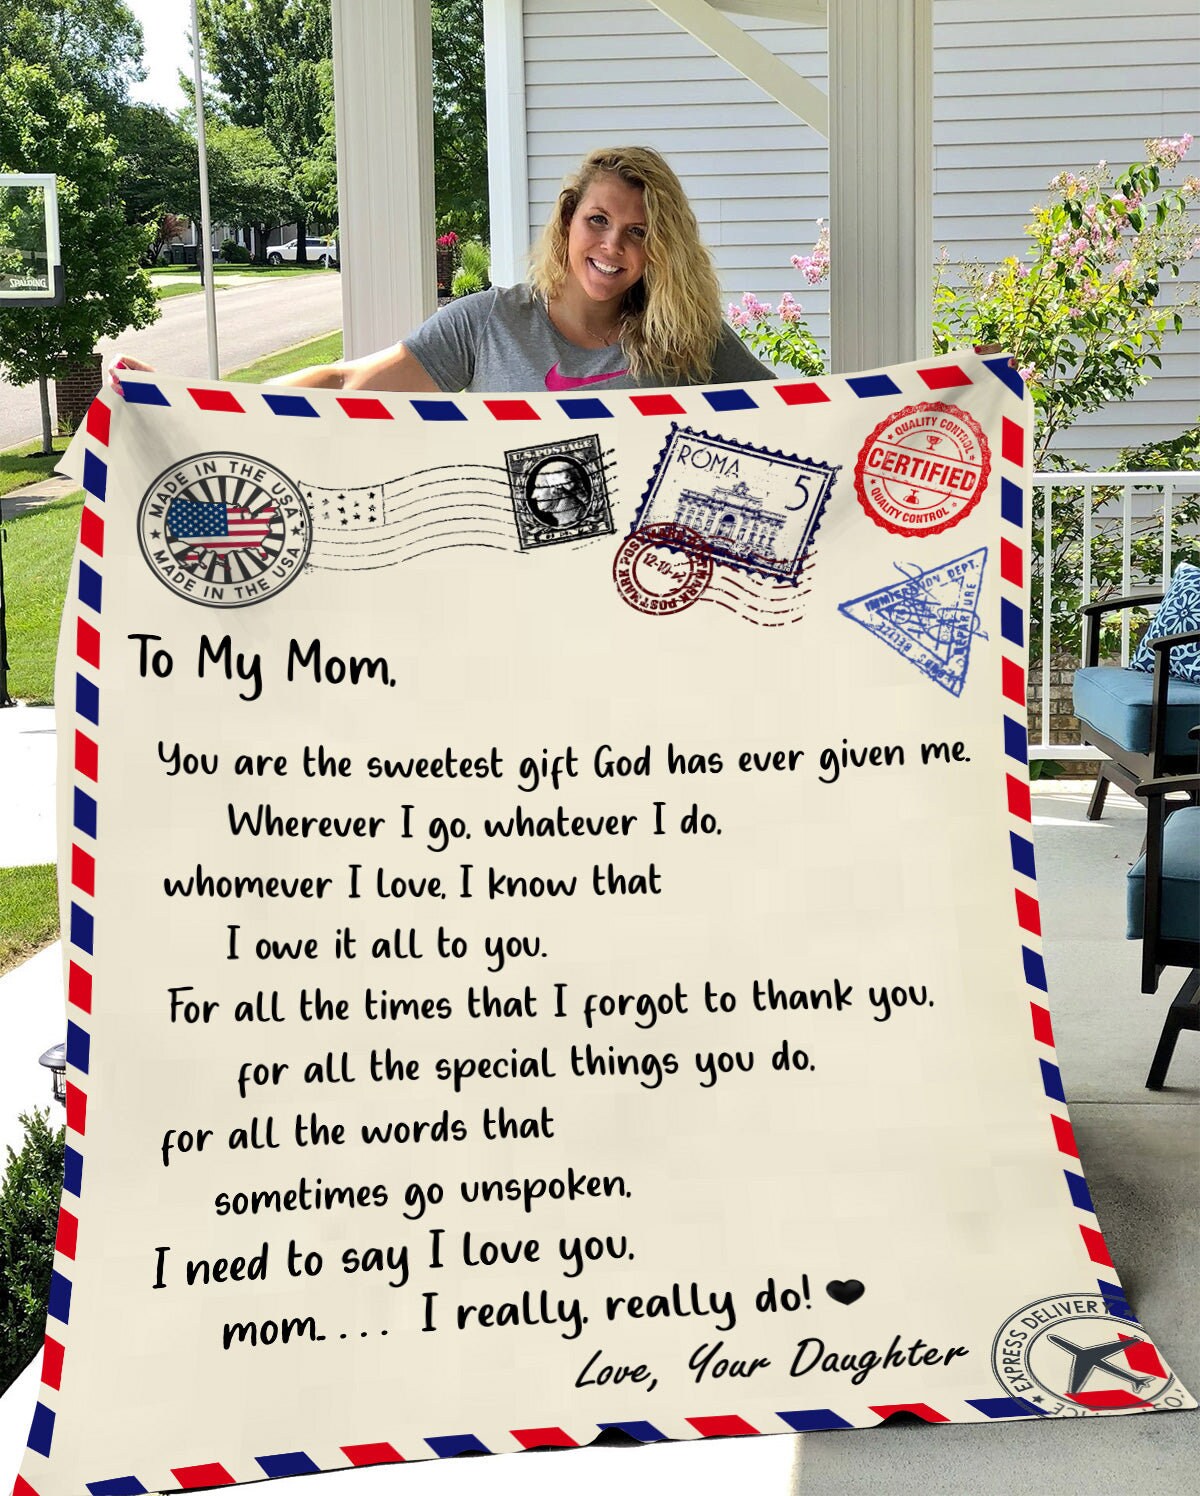 SPALDING
MADE IN THE USA
MADE IN THE USA
U.S. POSTAGE
ROMA
5
QUALITY CONTROL
CERTIFIED
QUALITY CONTROL
IMMIGRATION DEPT.
DEPARTURE
To My Mom,
You are the sweetest gift God has ever given me.
Wherever I go, whatever I do,
whomever I love, I know that
I owe it all to you.
For all the times that I forgot to thank you,
for all the special things you do,
for all the words that
sometimes go unspoken,
I need to say I love you,
mom.... I really, really do!
Love, Your Daughter
EXPRESS DELIVERY